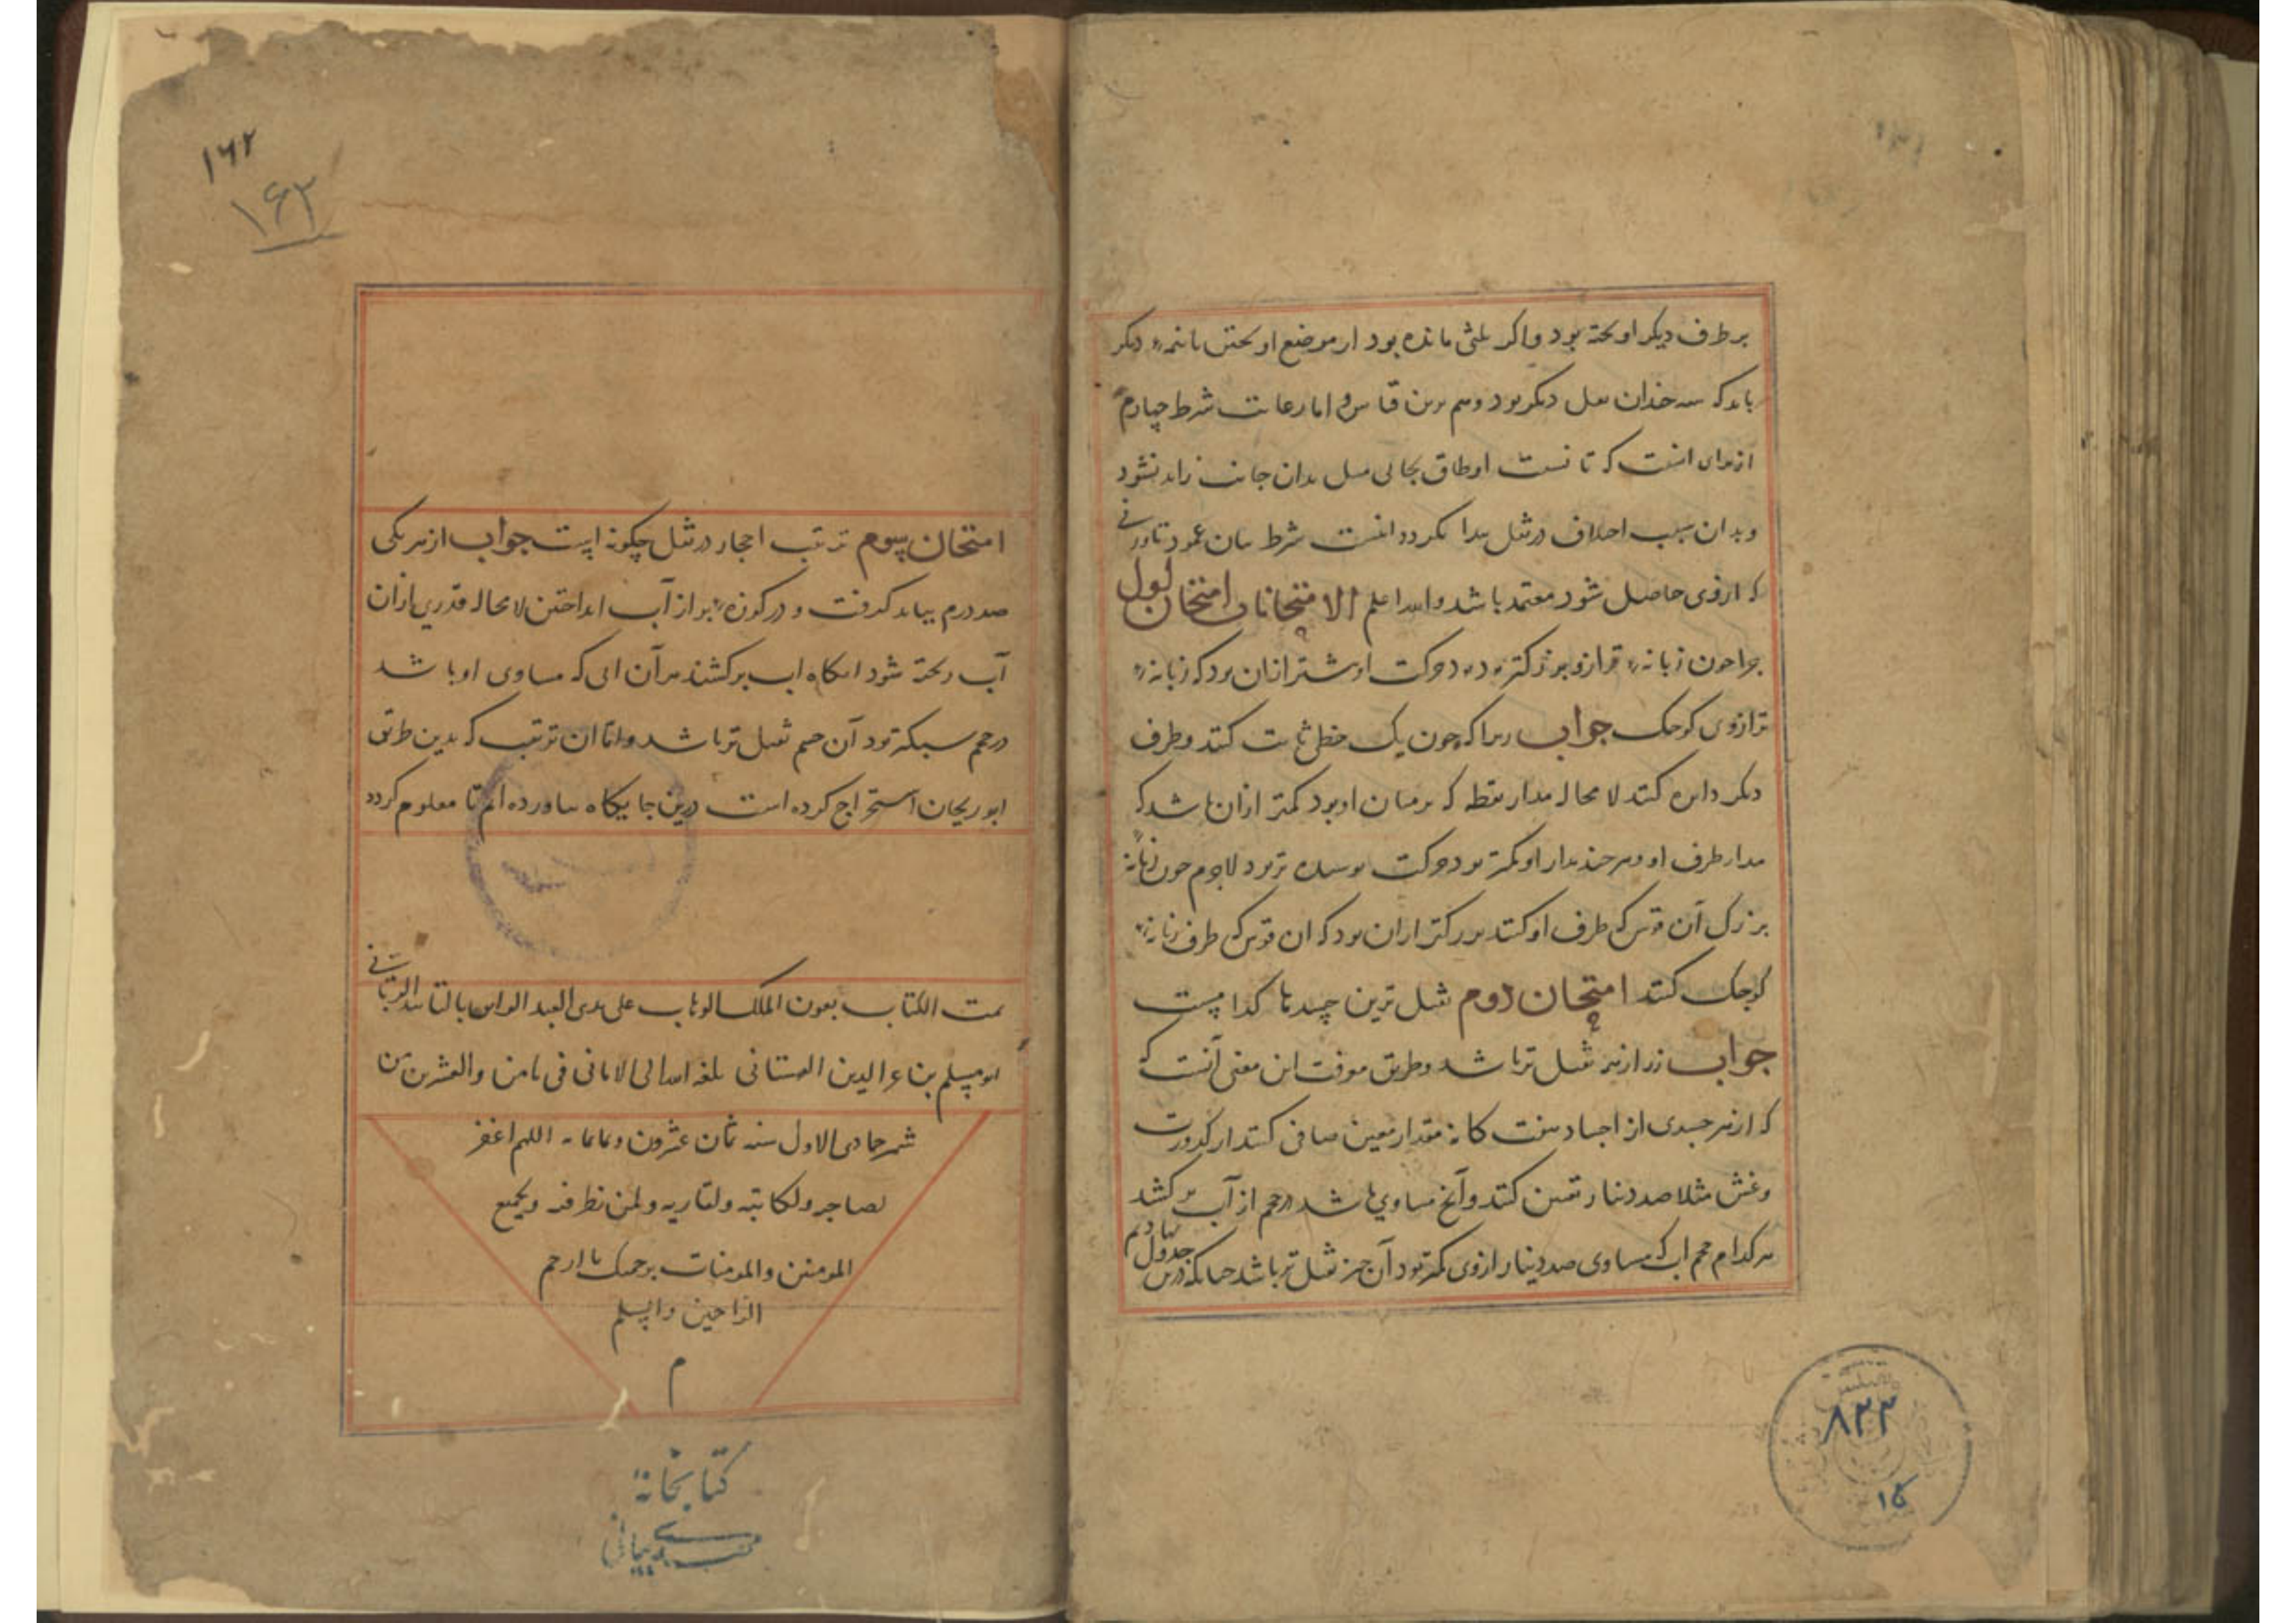 بر طرف دیگر اوخته بود و اگر ثلثی مانده بود از موضع اوختن بایذ دیگر
باید که سه خندان دیگر بود و هم برین قیاس و اما رعایت شرط چهارم
از برای انست که تا نسبت بدان جانب زاید نشود
و بدان سبب اختلاف در ثقل پیدا نکردد اینست شرط
که از وی حاصل شود معتمد باشد والله اعلم الامتحانات امتحان اول
چرا چون زبانهٔ ترازو بزرکتر بود حرکت او بیشتر از ان بود که زبانهٔ
ترازوی کوچک جواب زیرا که چون یک خطی ثابت کنند و طرف
دیگر دایره کند لا محاله مدار نقطه که بر میان او بود کمتر از ان باشد که
مدار طرف او و هر چند مدار او کمتر بود حرکت تر بود لاجرم چون زبانه
بزرک آن قوس که طرف او کند بزرکتر از ان بود که ان قوس که طرف زبانهٔ
کوچک کند امتحان دوم ثقیل ترین چیزها کدامست
جواب زر از همه ثقیل تر باشد و طریق معرفت این معنی آنست که
که از هر جسدی از اجساد هفت کانه مقدار معین صافی کنند از کدورت
و غش مثلا صد دینار تعیین کنند و آنچ مساوی باشد در حجم از آب بر کشند
هر کدام حجم اب که مساوی صد دینار از وی کمتر بود آن چیز ثقیل تر باشد چنانکه درین جدول نهادیم
۸۲۳
۱۶۲
۱۶۲
امتحان سوم ترتیب احجار در ثقل چکونه است جواب از هر یکی
صد درم بباید کرفت و در کوزهٔ پر از آب انداختن لا محاله قدری از ان
آب ریخته شود انکاه اب بر کشند هر آن ابی که مساوی او باشد
در حجم سبکتر بود آن جسم ثقیل تر باشد و اما ان ترتیب که بدین طریق
ابوریحان استخراج کرده است درین جایکاه بیاورده ام تا معلوم کردد
تمت الکتاب بعون الملک الوهاب علی یدی العبد بالتایید الربانی
ابو مسلم بن عز الدین بلغه الله الی الامانی فی ثامن والعشرین من
شهر جمادی الاول سنه ثمان عشرون وثمانمایه اللهم اغفر
لصاحبه ولکاتبه ولقاریه ولمن نظر فیه ولجمیع
المومنین والمومنات برحمتک یا ارحم
الراحمین
م
کتابخانهٔ